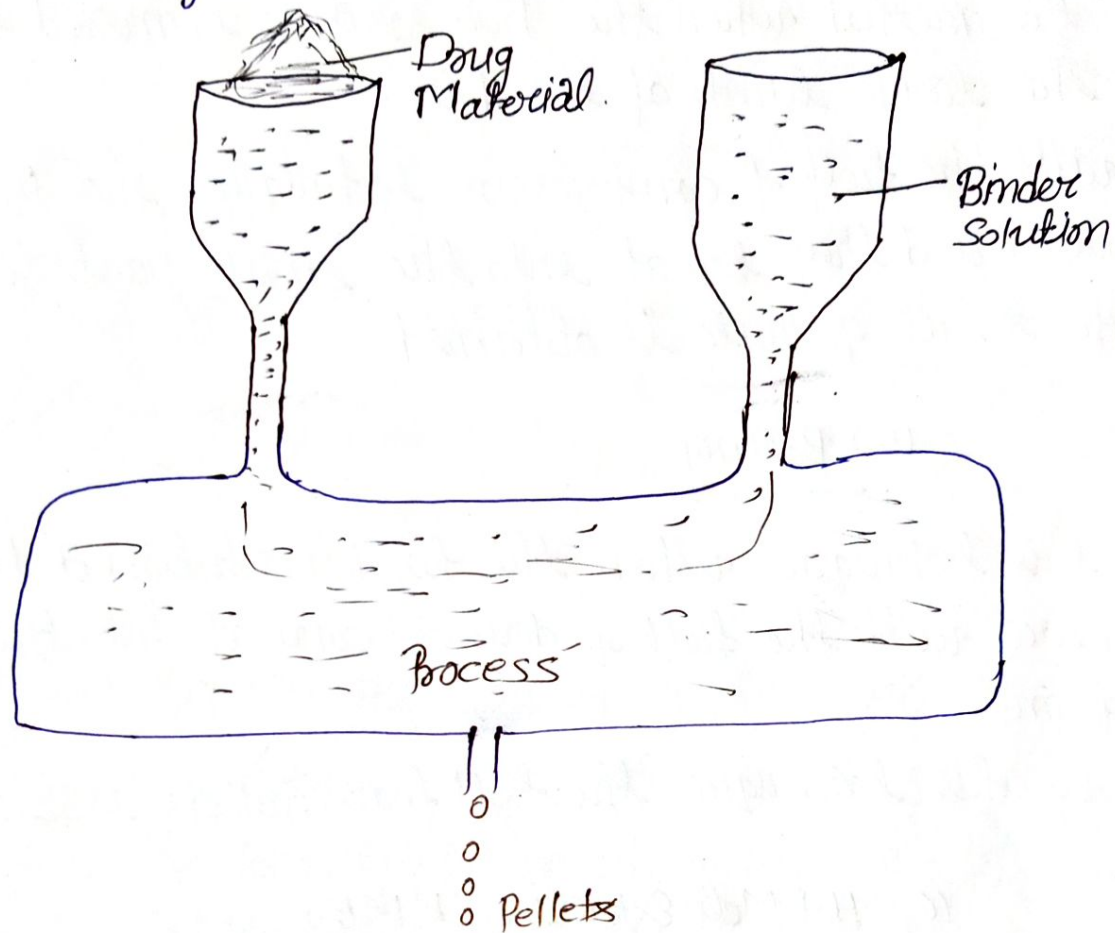 Drug
Material.
Binder
Solution
Process
Pellets